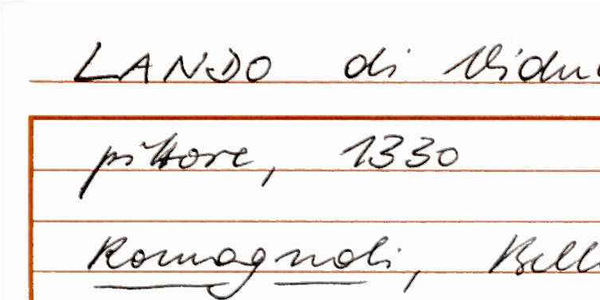 LANDO di Vidu
pittore, 1330
Romagnoli, Bell